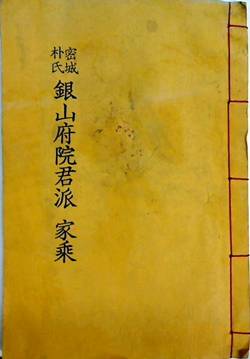 密城
朴氏
銀山府院君派 家乘